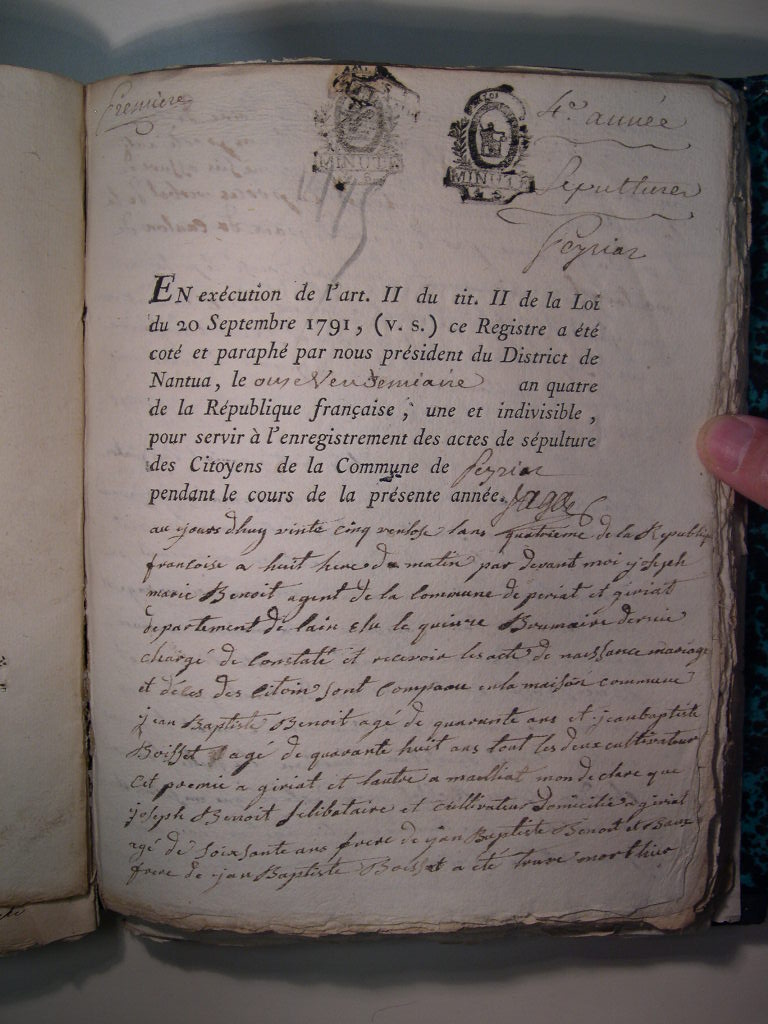 Première
4e année
MINUTE
MINUTE
Sépultures
Peyriat
EN exécution de l'art. II du tit. II de la Loi
du 20 Septembre 1791, (v. s.) ce Registre a été
coté et paraphé par nous président du District de
Nantua, le onze Vendemiaire an quatre
de la République française, une et indivisible,
pour servir à l'enregistrement des actes de sépulture
des Citoyens de la Commune de Peyriat
pendant le cours de la présente année.
au jourdhuy vinte cinq ventose lans quatrieme de la Republique
francoise a huit here du matin par devant moi joseph
marie Benoit agent de la commune de periat et giriat
departement de lain elu le quinze Brumaire dernie
chargé de constaté et recevoir les acte de naissance mariage
et déces des citoin sont comparu en la maison commune
jean Baptiste Benoit agé de quarente ans et jean baptiste
Boisset agé de quarante huit ans tout les deux cultivateur
cet premie a giriat et lautre a mon declare que
joseph Benoit selibataire et cultivateur domicilie a giriat
agé de soixsante ans frere de jan Baptiste Benoit et Baux
frere de jan Baptiste Boisset a eté truve mort hier